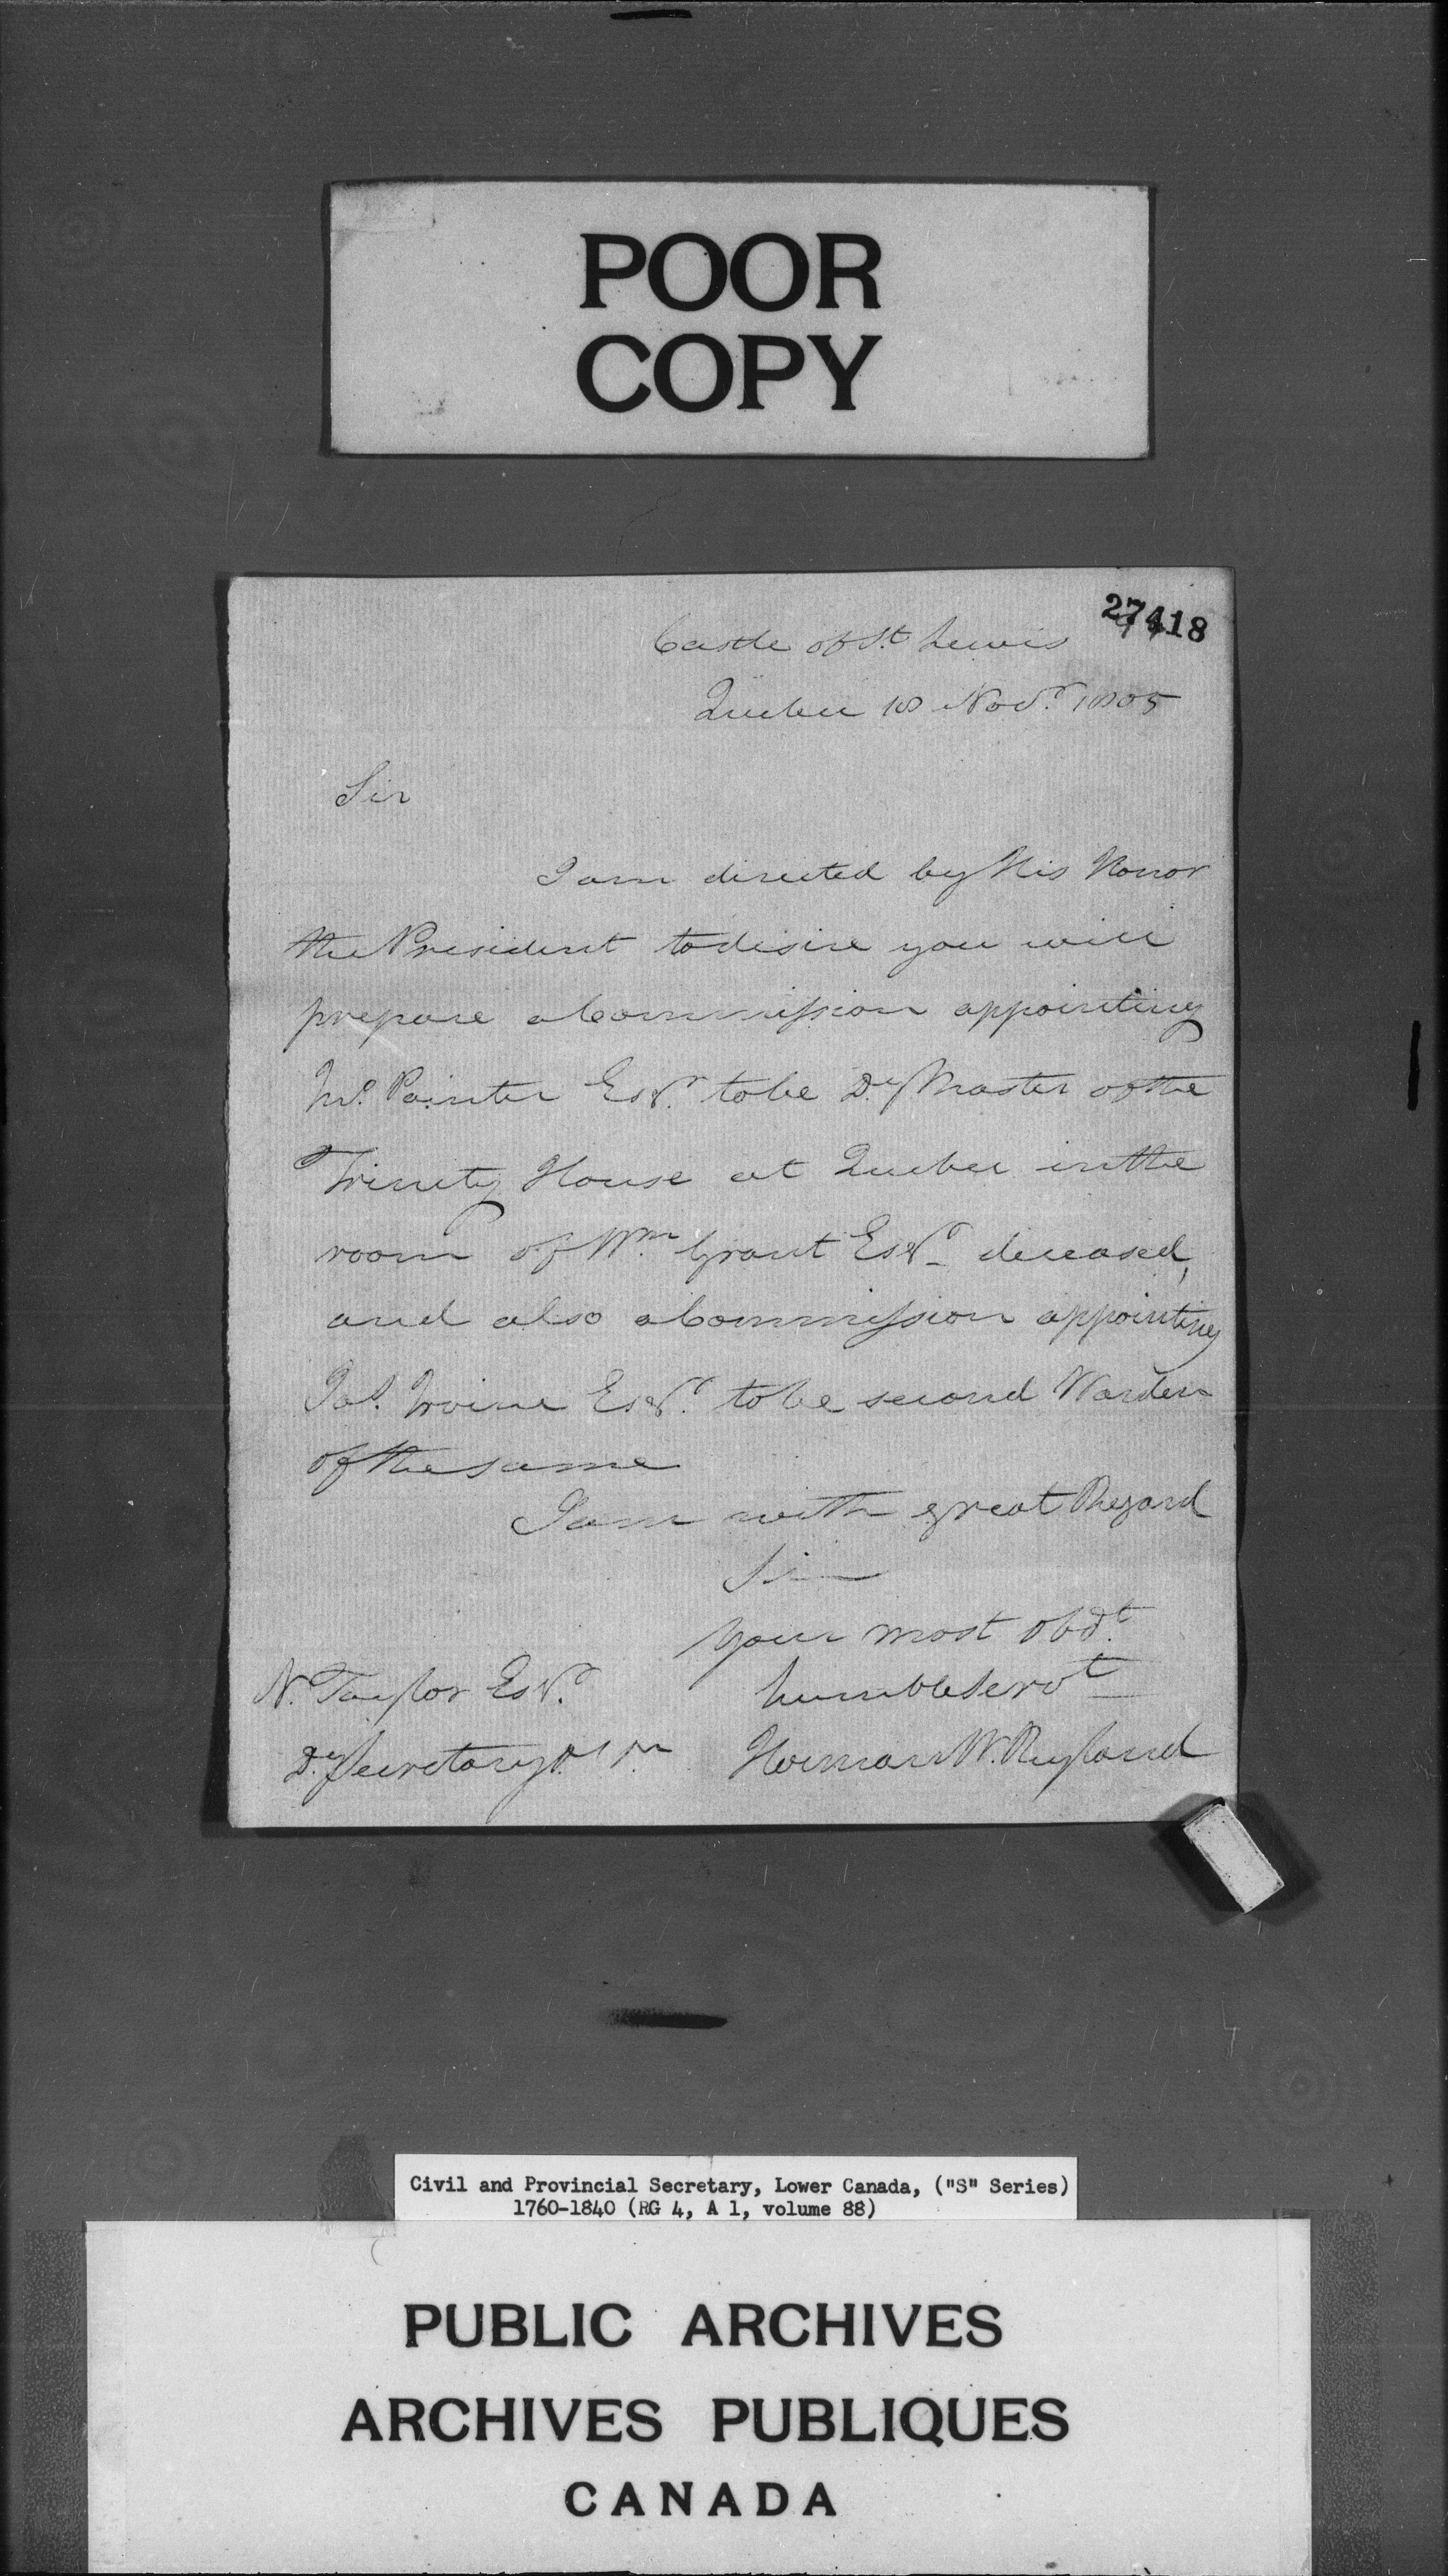 POOR
COPY
27418
Castle of St. Lewis
Quebec 18 Novr. 1805
Sir
I am directed by His Honor
the President to desire you will
prepare a Commission appointing
Jno. Painter Esqr. to be Dy. Master of the
Trinity House at Quebec in the
room of Wm. Grant Esqr. deceased,
and also a Commission appointing
Jas. Irvine Esqr. to be second Warden
of the same
I am with great Regard
Sir
Your most obdt.
humble Servt.
N. Taylor Esqr.
Dy. Secretary
Herman W. Ryland
Civil and Provincial Secretary, Lower Canada, ("S" Series)
1760-1840 (RG 4, A 1, volume 88)
PUBLIC ARCHIVES
ARCHIVES PUBLIQUES
CANADA